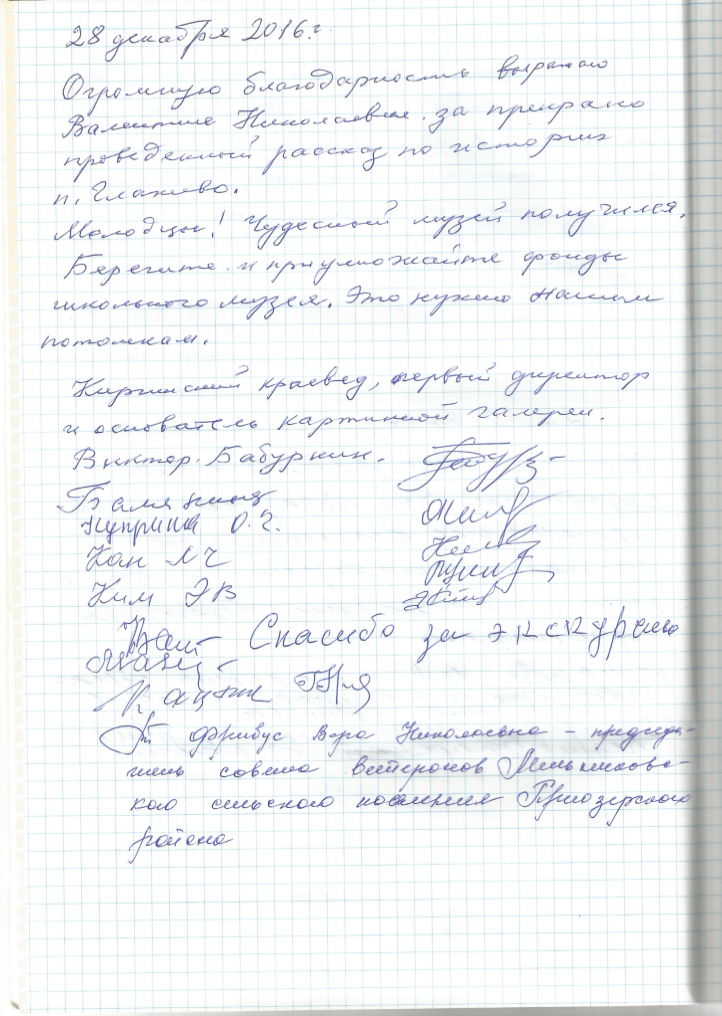 28 декабря 2016 г.
Огромную благодарность выражаю
Валентине Николаевне за прекрасно
проведенный рассказ по истории
п. Глажево.
Молодцы! Чудесный музей получился.
Берегите и приумножайте фонды
школьного музея. Это нужно нашим
потомкам.
Киришский краевед, первый директор
и основатель картинной галереи.
Виктор Бабуркин.
Куприна О.
Кан
Ким ЭВ
Спасибо за экскурсию
Фрибус Вера Николаевна - председа-
тель совета ветеранов Мельниково-
кого сельского поселения Приозерского
района